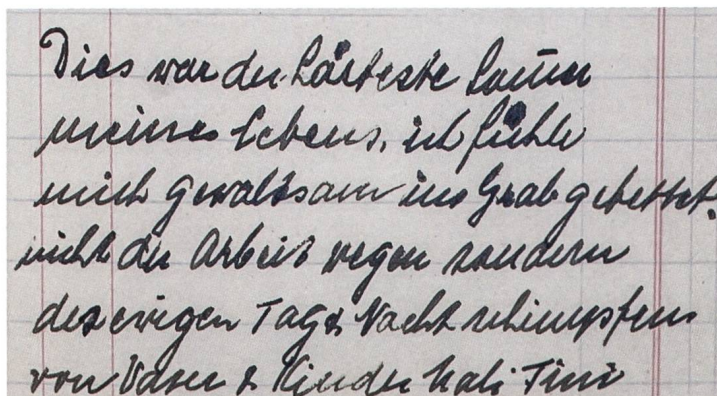 Dies war der härteste Somer
meines Lebens, ich fühle
mich gewaltsam ins Grab gebettet.
nicht der Arbeit wegen sondern
des ewigen Tag & Nacht schimpfens
von Vater & Kinder Mali Tini